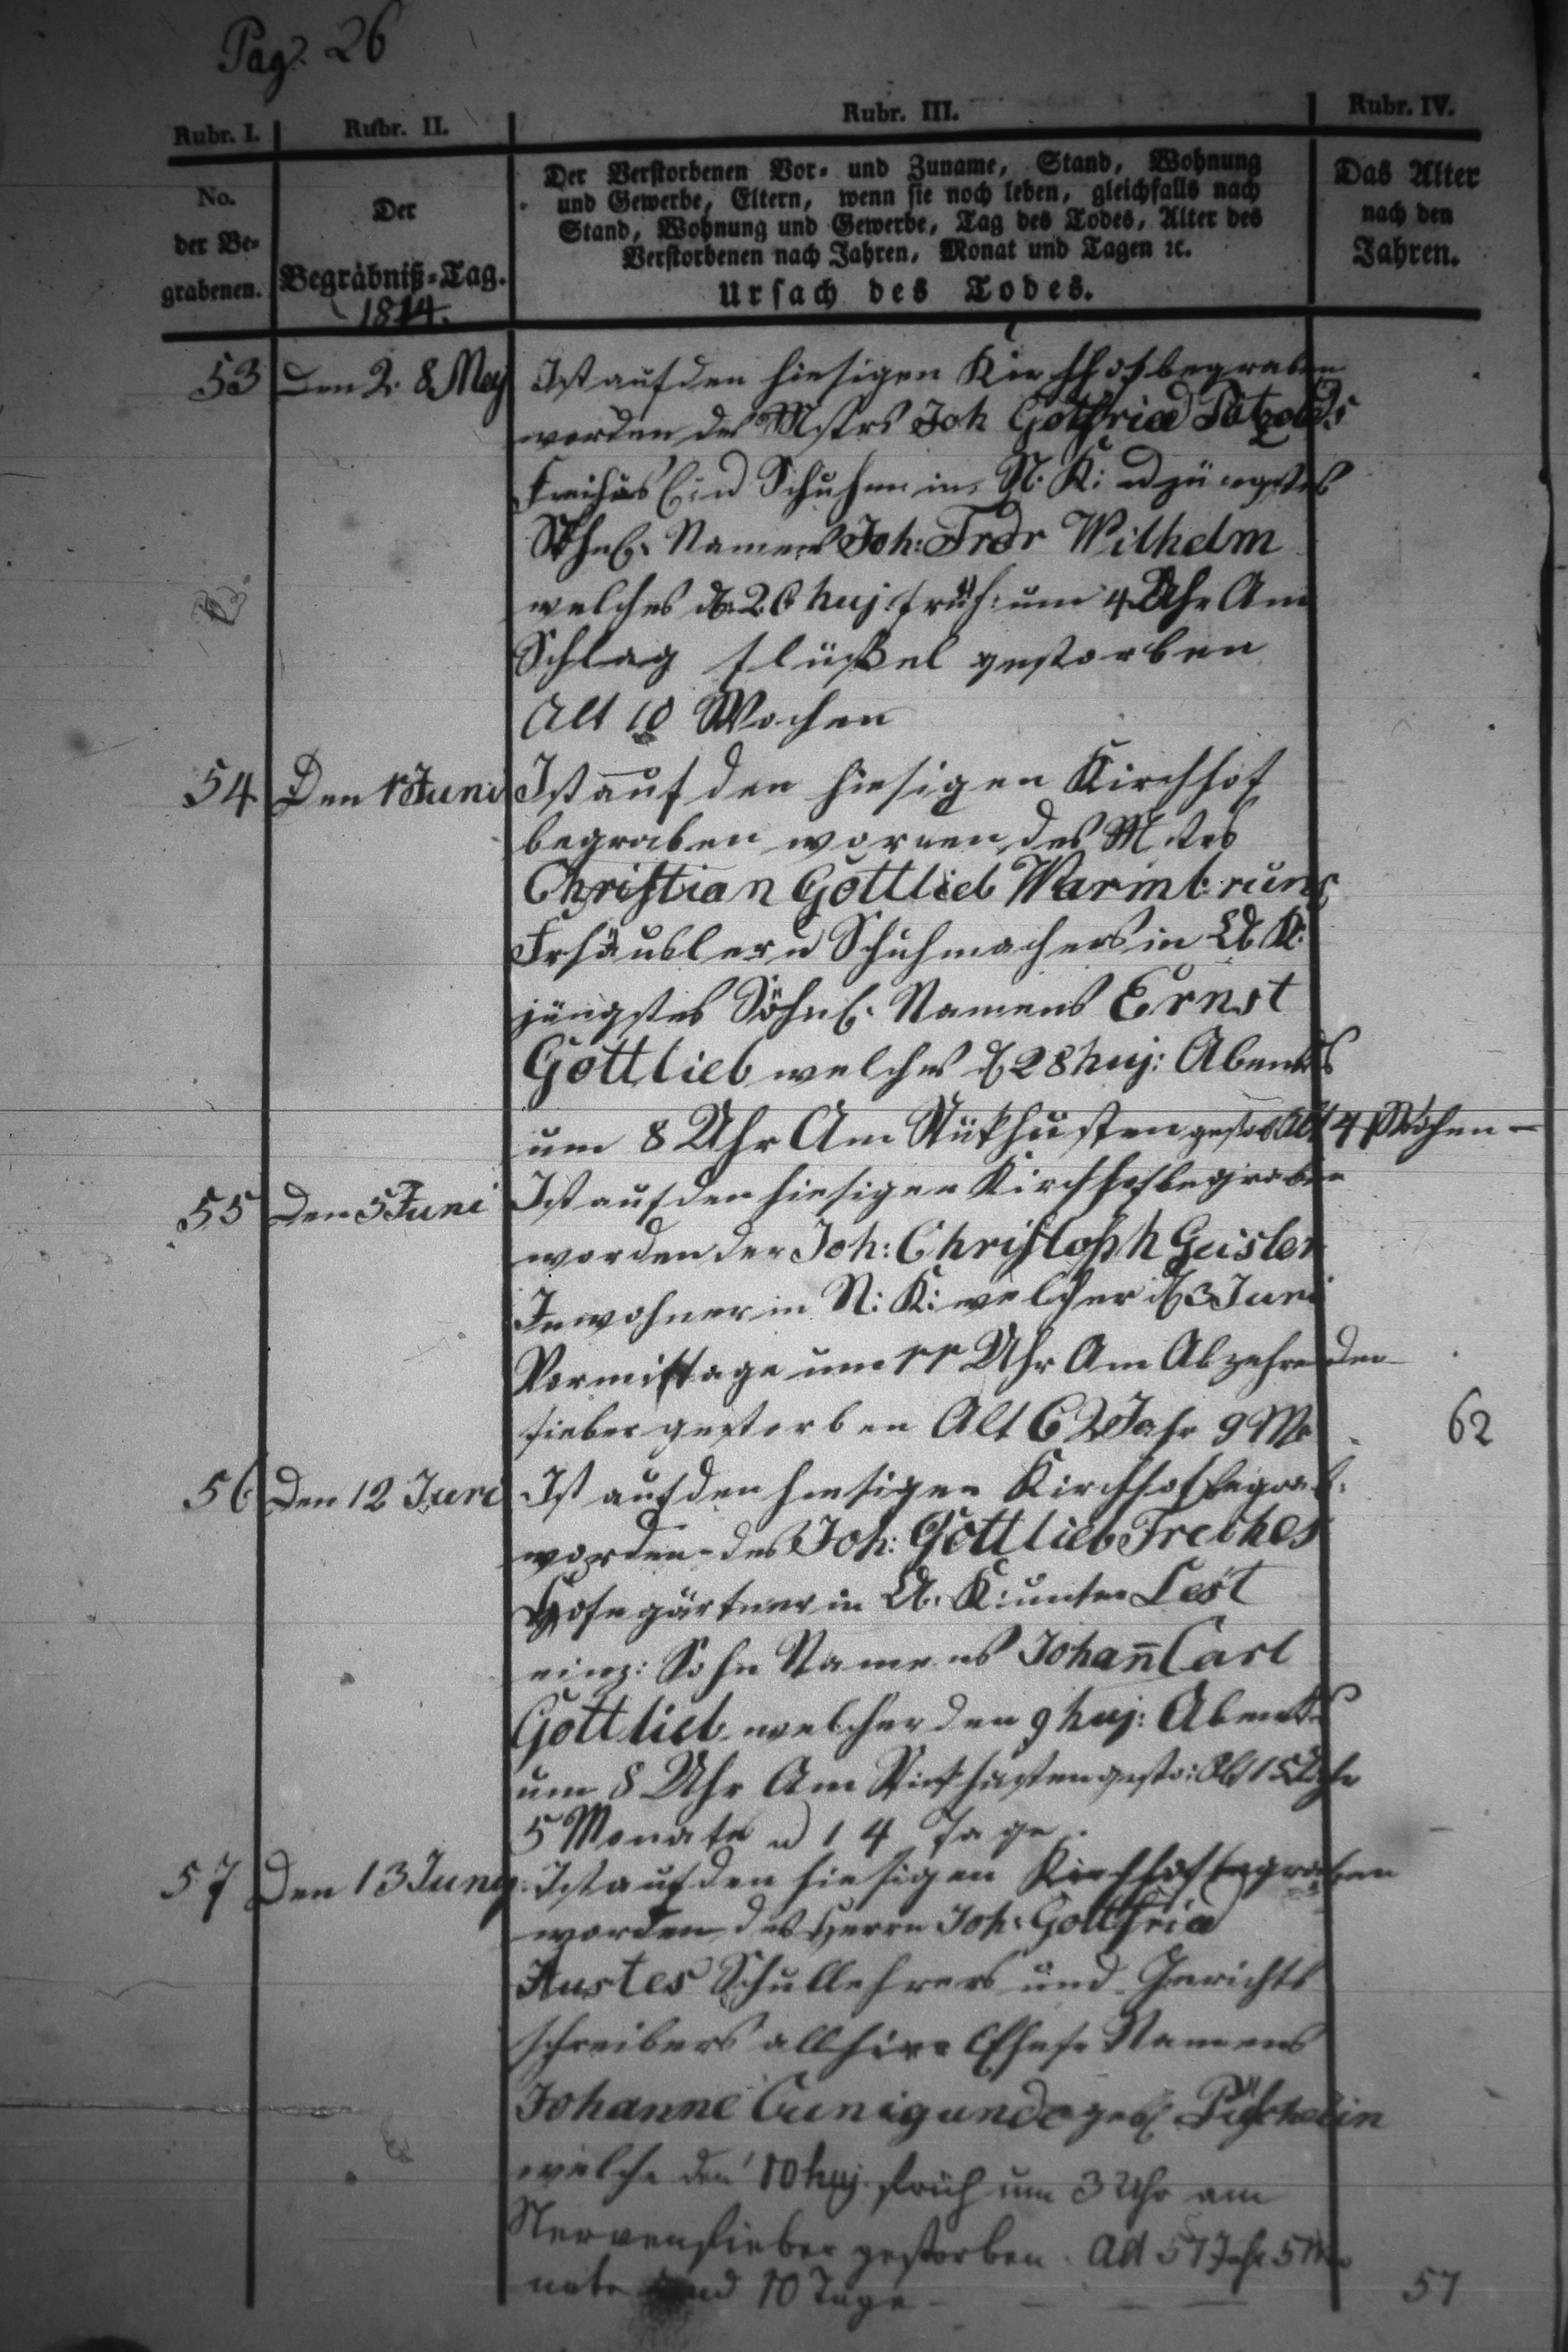 Pag. 26
Rubr. I. Rubr. II. Rubr. III. Rubr. IV.
No. der Be-grabenen.
Der Begräbniß-Tag. 1814.
Der Verstorbenen Vor- und Zuname, Stand, Wohnung
und Gewerbe, Eltern, wenn sie noch leben, gleichfalls nach
Stand, Wohnung und Gewerbe, Tag des Todes, Alter des
Verstorbenen nach Jahren, Monat und Tagen ꝛc.
Ursach des Todes.
Das Alter
nach den
Jahren.
53 Den 28 Mey Ist auf den hiesigen Kirchhof begraben
worden des Mstrs Joh Gottfried Pätzolds
Schuhm in N. K: jüngstes
Söhnl. Namens Joh: Frdr Wilhelm
welches d. 26 huj. früh: um 4 Uhr Am
Schlag flüßel gestorben
Alt 10 Wochen
54 Den 1 Juni Ist auf den hiesigen Kirchhof
begraben worden des Mstrs
Christian Gottlieb Warmbruns
Frhäusler u Schuhmachers in K:
jüngstes Söhnl. Namens Ernst
Gottlieb welches d 28 huj: Abends
um 8 Uhr Am Stükhusten gestorb Alt 4 Wochen –
55 Den 3 Juni Ist auf den hiesigen Kirchhof begraben
worden der Joh: Christoph Geisler
Inwohner in N: K: welcher d 3 Juni
Vormittage um 11 Uhr Am Abzehrenden
fieber gestorben Alt 62 Jahr 9 Mo 62
56 Den 12 Juni Ist auf den hiesigen Kirchhof begrab:
worden des Joh: Gottlieb Freches
Hofegärtner in K: unter Lest
einz: Sohn Namens Johan̄ Carl
Gottlieb welcher den 9 huj: Abends
um 8 Uhr Am Stikhusten gesto: Alt 1 Jahr
5 Monate u 14 Tage.
57 Den 13 Juny. Ist auf den hiesigen Kirchhof begraben
worden des Herrn Joh: Gottfried
Austes Schullehrers und Gerichts
schreibers allhier Ehefr Namens
Johanne Cunigunde geb. Püschelin
welche den 10 huj. früh um 3 Uhr am
Nervenfieber gestorben. Alt 57 Jahr 5 Mo
nate und 10 Tage – – – 57